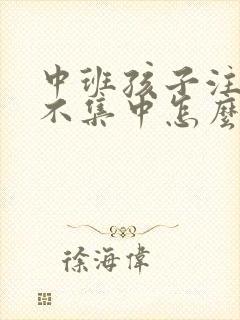 中班孩子注
不集中怎麽
徐海偉